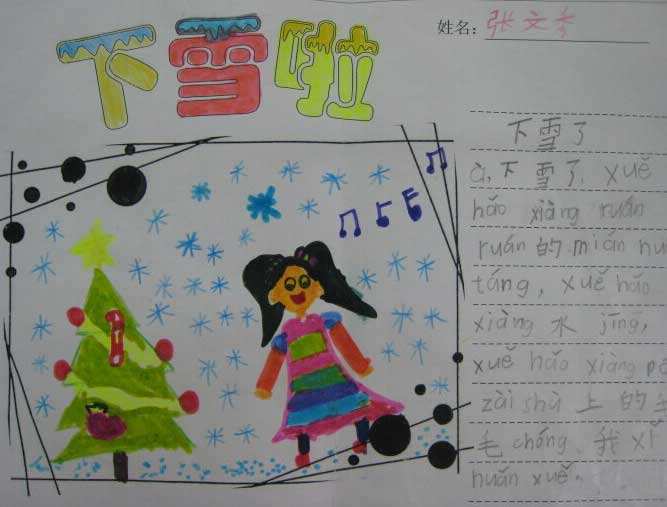 下雪啦
姓名：张文秀
下雪了
à，下雪了，xuě
hǎo xiàng ruán
ruán的mián hu
táng，xuě hǎo
xiàng 水 jīng，
xuě hǎo xiàng pá
zài shù 上的毛
毛 chóng、我 xǐ
huān xuě。